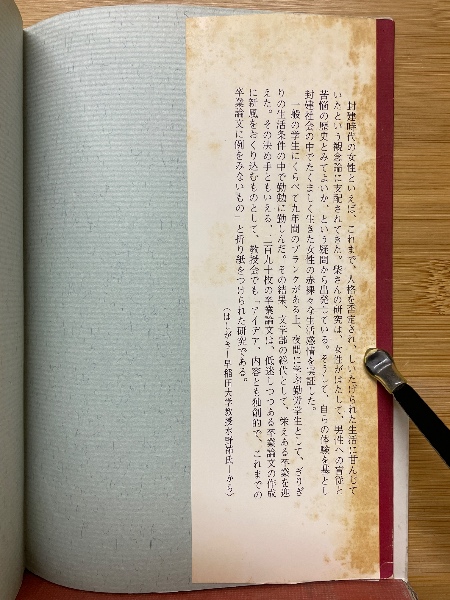 封建時代の女性といえば、これまで、人格を否定され、しいたげられた生活に甘んじて
いたという観念論に支配されてきた。柴さんの研究は、女性がはたして、男性への盲従と
苦悩の歴史とみてよいか、という疑問から出発している。そうして、自らの体験を基とし
封建社会の中でたくましく生きた女性の赤裸々な生活感情を実証した。
一般の学生にくらべて九年間のブランクがある上、夜間に学ぶ勤労学生として、ぎりぎ
りの生活条件の中で勤勉に勤しんだ。その結果、文学部の総代として、栄えある卒業を迎
えた。その決め手ともいえる、二百九十枚の卒業論文は、低迷しつつある卒業論文の作成
に新風をおくり込むものとして、教授会でも「アイデア、内容とも独創的で、これまでの
卒業論文に例をみないもの」と折り紙をつけられた研究である。
(はしがき―早稲田大学教授水野祐氏―から)